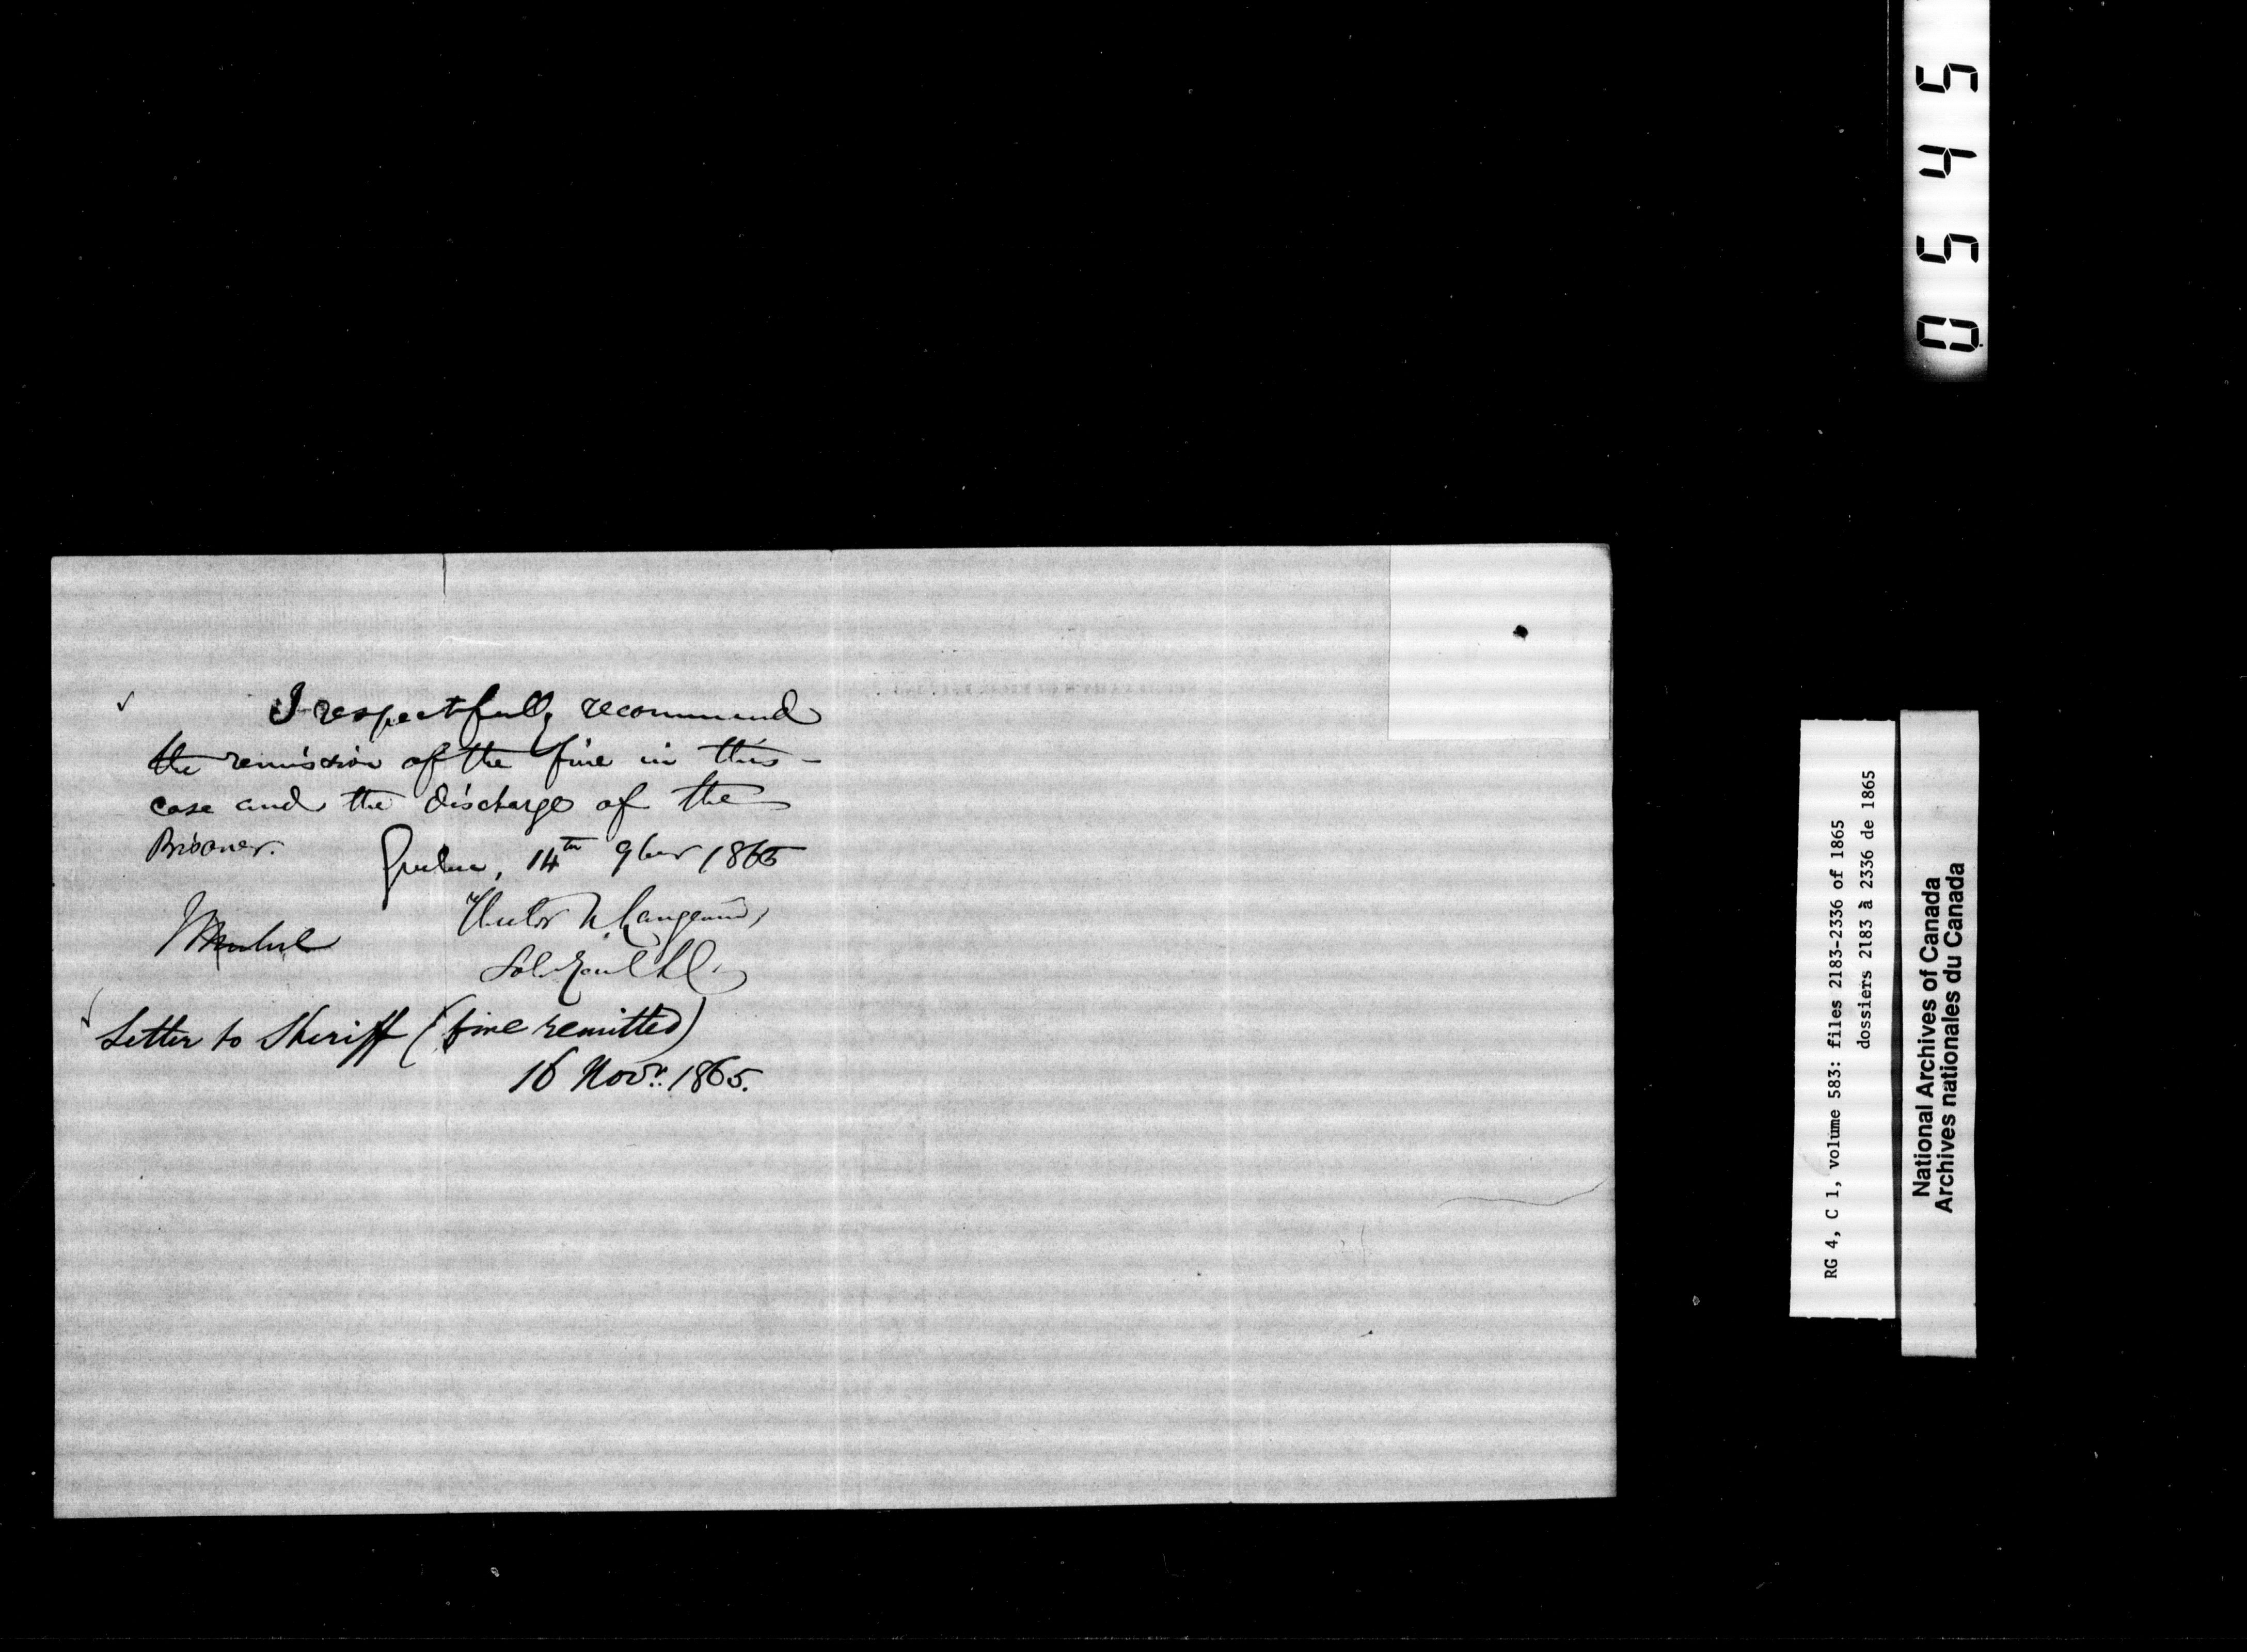 I respectfully recommend
the remission of the fine in this -
case and the discharge of the
Prisoner.
Quebec, 14th 9ber 1865
Hector L. Langevin,
Sol. Genl L.C.
Letter to Sheriff (fine remitted)
16 Novr. 1865.
0545
RG 4, C 1, volume 583: files 2183-2336 of 1865
dossiers 2183 à 2336 de 1865
National Archives of Canada
Archives nationales du Canada